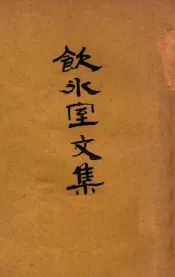 飲冰室文集